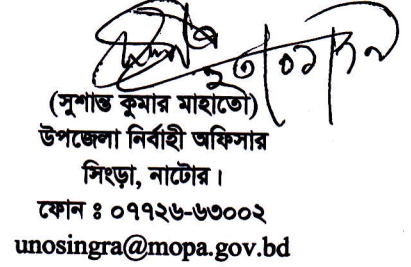 (সুশান্ত কুমার মাহাতো)
উপজেলা নির্বাহী অফিসার
সিংড়া, নাটোর।
ফোন ঃ ০৭৭২৬-৬৩০০২
unosingra@mopa.gov.bd